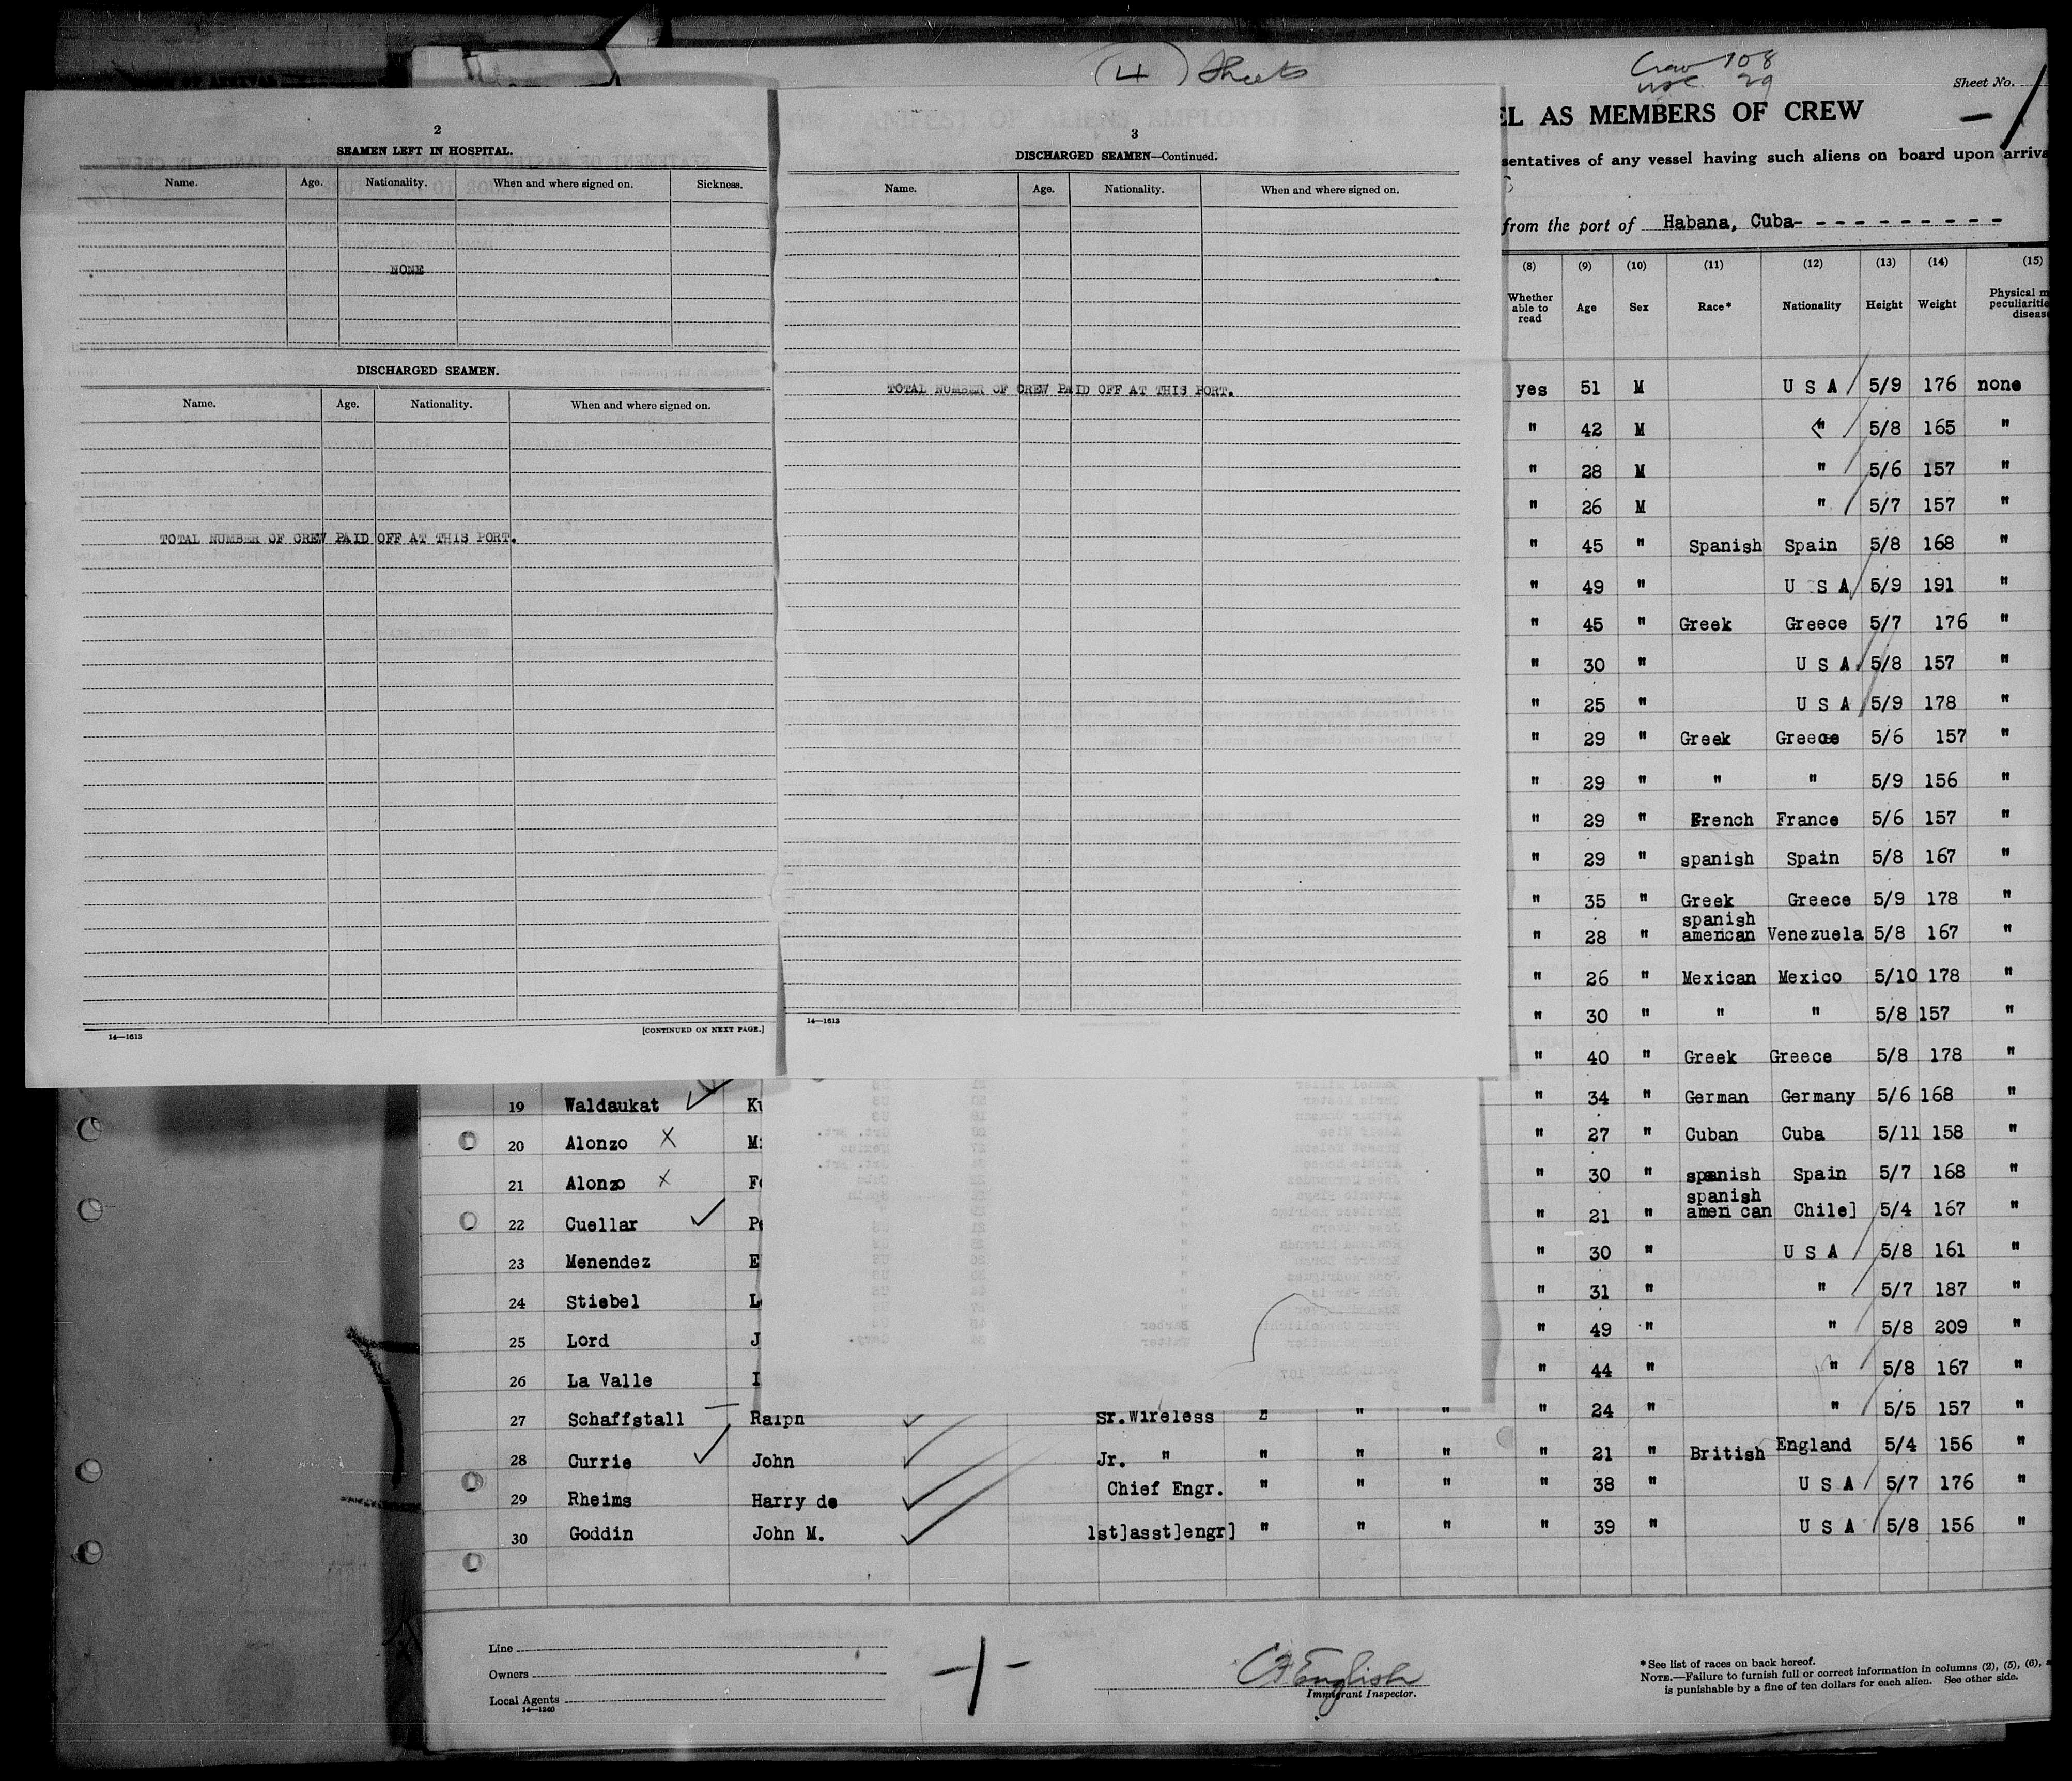 (4) Sheets
Crew 108
USC 29
Sheet No.
-1
2
SEAMEN LEFT IN HOSPITAL.
Name. Age. Nationality. When and where signed on. Sickness.
NONE
DISCHARGED SEAMEN.
Name. Age. Nationality. When and where signed on.
TOTAL NUMBER OF CREW PAID OFF AT THIS PORT.
14—1613
[CONTINUED ON NEXT PAGE.]
3
DISCHARGED SEAMEN—Continued.
Name. Age. Nationality. When and where signed on.
TOTAL NUMBER OF CREW PAID OFF AT THIS PORT.
14—1613
EL AS MEMBERS OF CREW
sentatives of any vessel having such aliens on board upon arriva
from the port of Habana, Cuba- - - - - - - - - -
(8) (9) (10) (11) (12) (13) (14) (15)
Whether able to read Age Sex Race* Nationality Height Weight Physical m peculiaritie diseas
yes 51 M U S A 5/9 176 none
" 42 M " 5/8 165 "
" 28 M " 5/6 157 "
" 26 M " 5/7 157 "
" 45 " Spanish Spain 5/8 168 "
" 49 " U S A 5/9 191 "
" 45 " Greek Greece 5/7 176 "
" 30 " U S A 5/8 157 "
" 25 " U S A 5/9 178 "
" 29 " Greek Greece 5/6 157 "
" 29 " " " 5/9 156 "
" 29 " French France 5/6 157 "
" 29 " spanish Spain 5/8 167 "
" 35 " Greek Greece 5/9 178 "
" 28 " spanish american Venezuela 5/8 167 "
" 26 " Mexican Mexico 5/10 178 "
" 30 " " " 5/8 157 "
" 40 " Greek Greece 5/8 178 "
19 Waldaukat Ku " 34 " German Germany 5/6 168 "
20 Alonzo X M " 27 " Cuban Cuba 5/11 158 "
21 Alonzo X Fe " 30 " spanish Spain 5/7 168 "
22 Cuellar Pe " 21 " spanish american Chile] 5/4 167 "
23 Menendez E " 30 " U S A 5/8 161 "
24 Stiebel L " 31 " " 5/7 187 "
25 Lord J " 49 " " 5/8 209 "
26 La Valle I " 44 " " 5/8 167 "
27 Schaffstall Ralph Sr.Wireless " " " " 24 " " 5/5 157 "
28 Currie John Jr. " " " " " 21 " British England 5/4 156 "
29 Rheims Harry de Chief Engr. " " " " 38 " U S A 5/7 176 "
30 Goddin John M. 1st]asst]engr] " " " " 39 " U S A 5/8 156 "
Line
Owners
Local Agents
14—1240
-1-
C F English
Immigrant Inspector.
*See list of races on back hereof.
NOTE.—Failure to furnish full or correct information in columns (2), (5), (6),
is punishable by a fine of ten dollars for each alien. See other side.